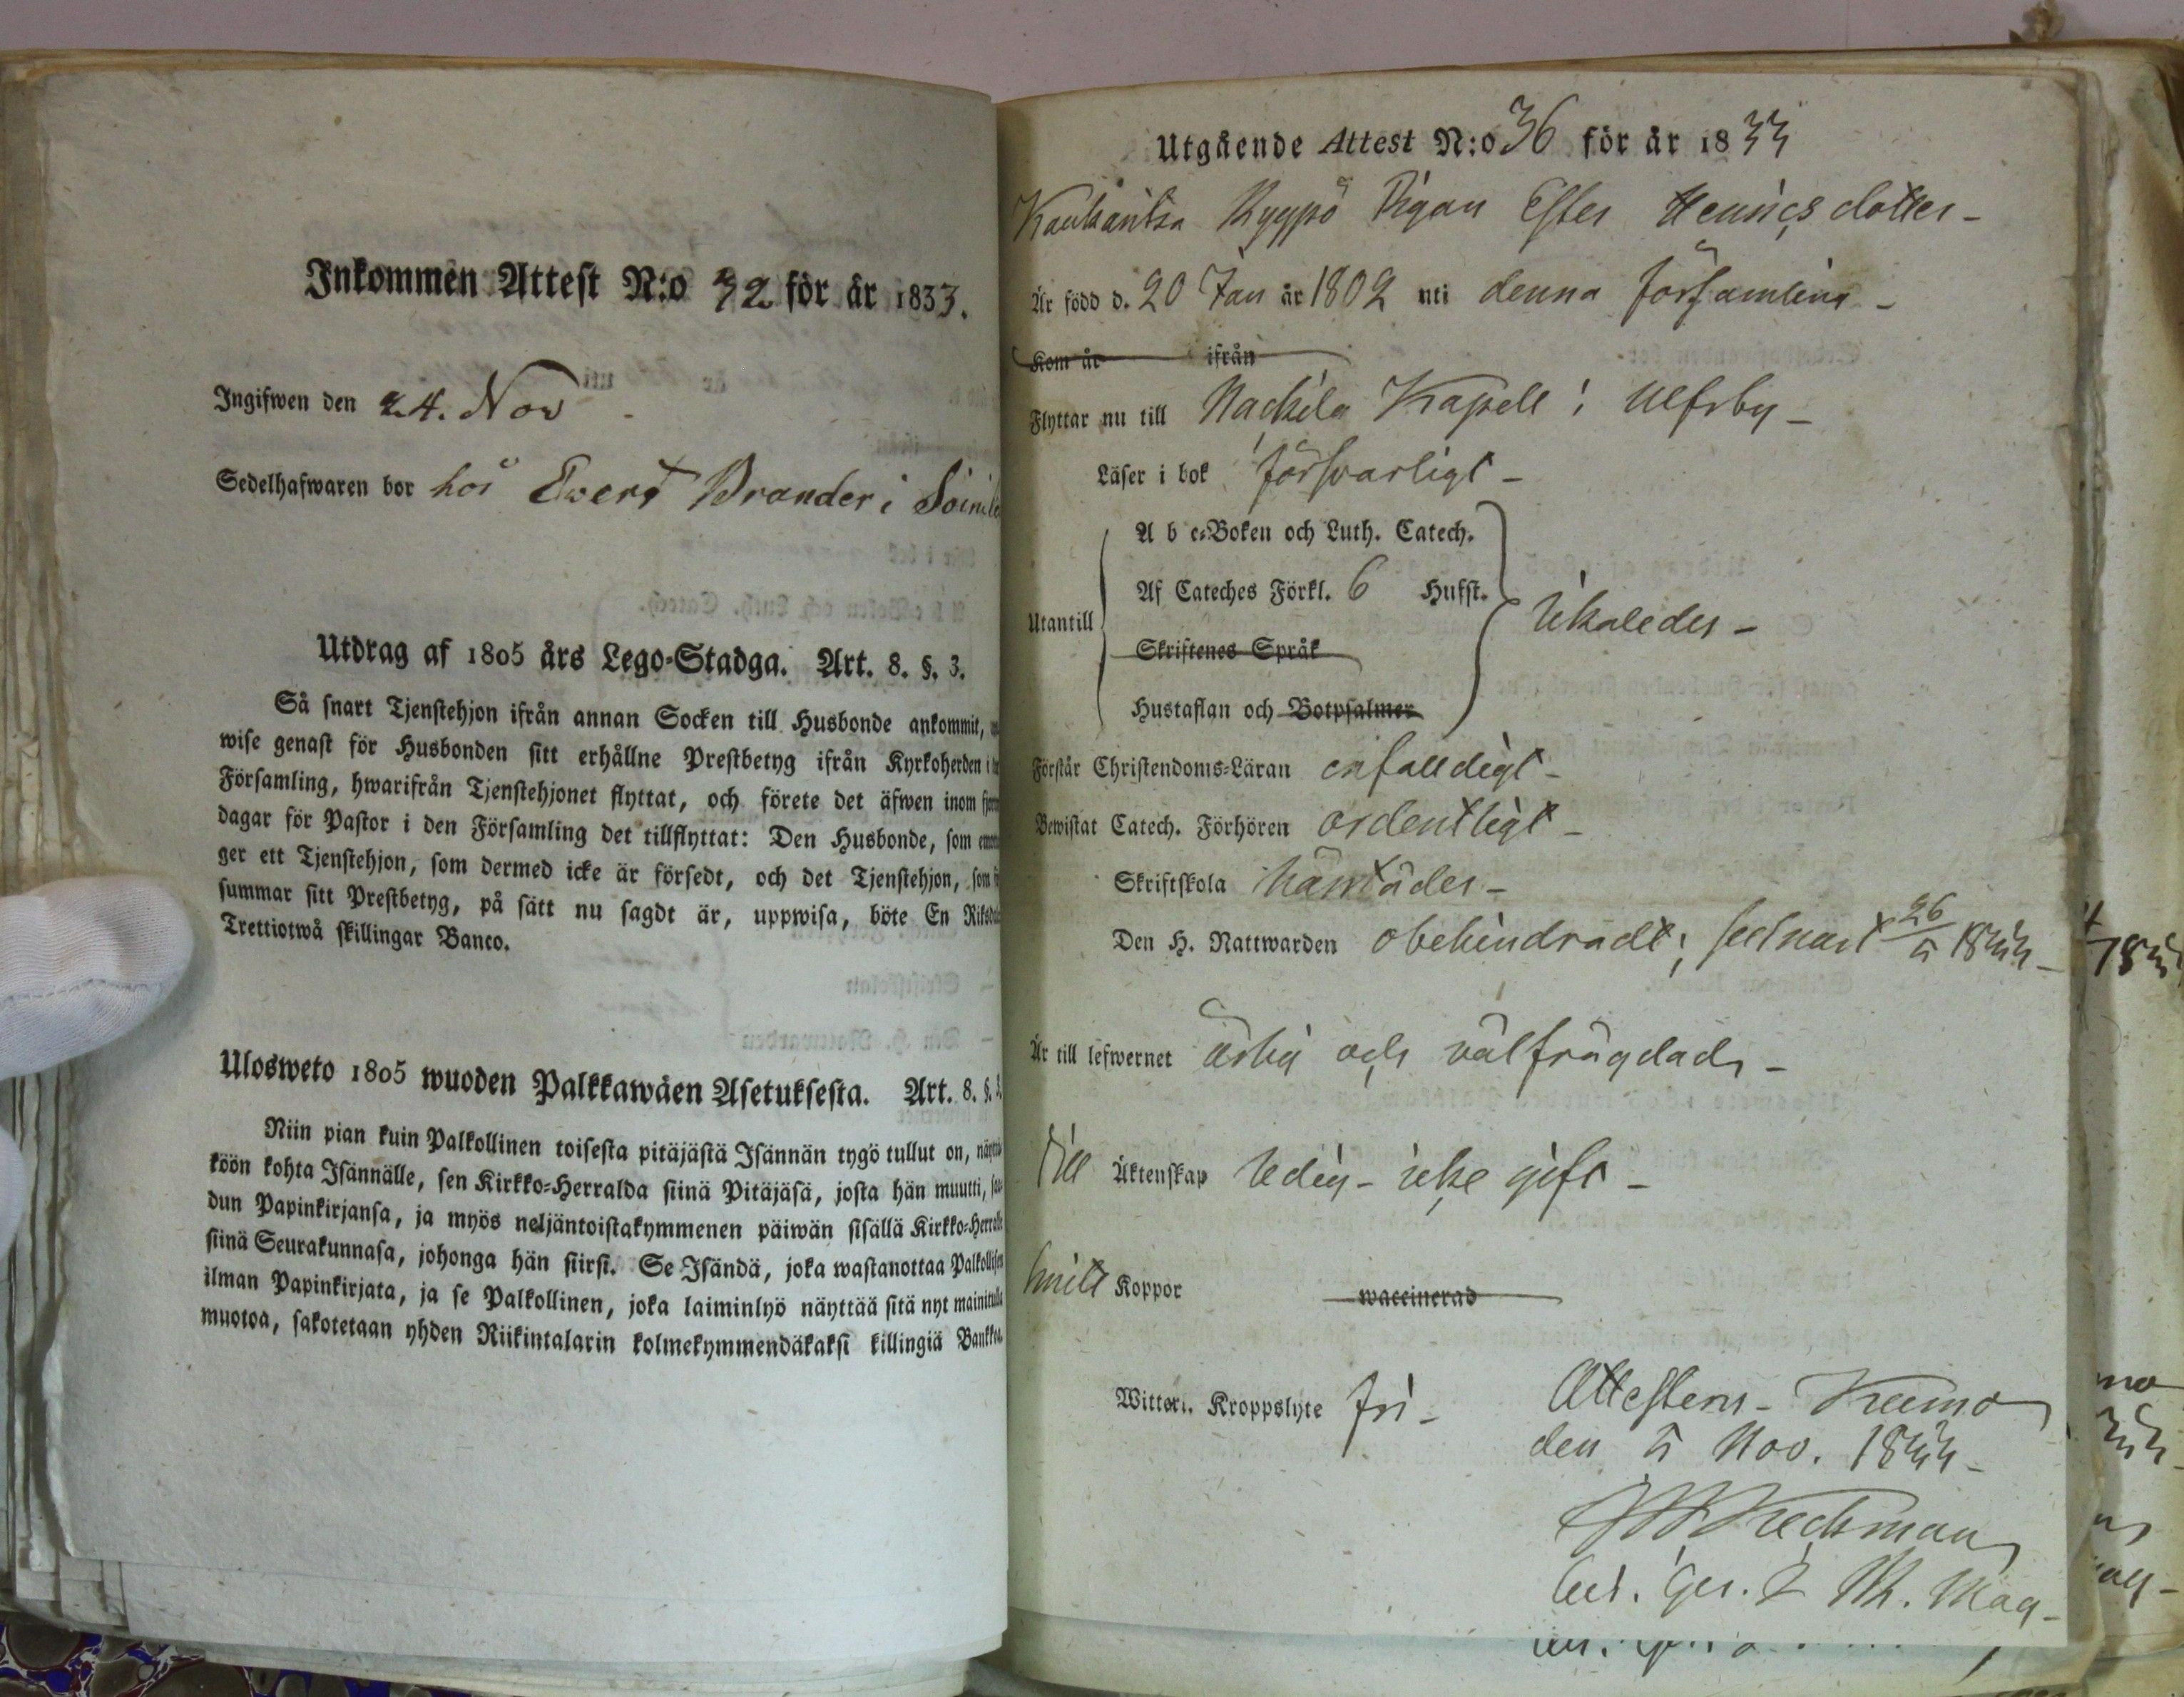 Inkommen Attest N:o 32 för år 1833.
Ingifwen den 24. Nov
Sedelhafwaren bor hos Ewert Brander i
Utdrag af 1805 års Lego-Stadga. Art. 8. §. 3.
Så snart Tjenstehjon ifrån annan Socken till Husbonde ankommit,
wise genast för Husbonden sitt erhållne Prestbetyg ifrån Kyrkoherden i
Församling, hwarifrån Tjenstehjonet flyttat, och förete det äfwen inom
dagar för Pastor i den Församling det tillflyttat: Den Husbonde, som
ger ett Tjenstehjon, som dermed icke är försedt, och det Tjenstehjon, som
summar sitt Prestbetyg, på sätt nu sagdt är, uppwisa, böte En
Trettiotwå skillingar Banco.
Ulosweto 1805 wuoden Palkkawäen Asetuksesta. Art. 8. §. 3.
Niin pian kuin Palkollinen toisesta pitäjästä Isännän tygö tullut on,
köön kohta Isännälle, sen Kirkko-Herralda siinä Pitäjäsä, josta hän muutti,
dun Papinkirjansa, ja myös neljäntoistakymmenen päiwän sisällä Kirkko-
siinä Seurakunnasa, johonga hän siirsi. Se Isändä, joka wastanottaa
ilman Papinkirjata, ja se Palkollinen, joka laiminlyö näyttää sitä nyt
muotoa, sakotetaan yhden Riikintalarin kolmekymmendäkaksi killingiä
Utgående Attest N:o 36 för år 1833
Pigan Ester Henricsdotter -
Är född d. 20 Jan år 1802 uti denna församling -
Kom år ifrån
Flyttar nu till Nackila Kapell i Ulfsby -
Läser i bok försvarligt -
A b c-Boken och Luth. Catech.
Af Cateches Förkl. 6 Hufst.
Utantill likaledes -
Skriftenes Språk
Hustaflan och Botpsalmer
Förstår Christendoms-Läran enfalldigt -
Bewistat Catech. Förhören ordentligt -
Skriftskola
Den H. Nattwarden obehindradt; sednast 26/5 1833 -
Är till lefwernet ärlig och välfrägdad -
till Äktenskap ledig - icke gift -
haft Koppor waccinerad
Witterl. Kroppslyte fri - Attestern - Keumo
den 5 Nov. 1833 -